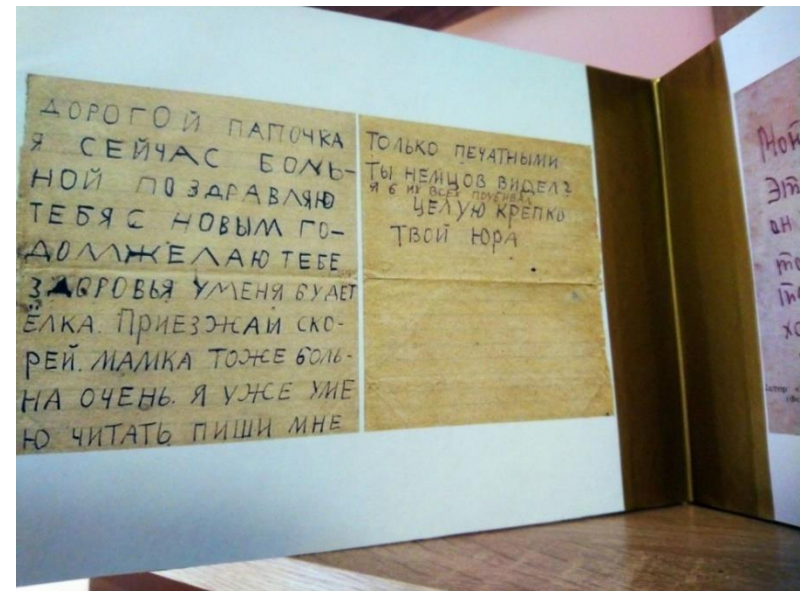 ДОРОГОЙ ПАПОЧКА
Я СЕЙЧАС БОЛЬ-
НОЙ ПОЗДРАВЛЯЮ
ТЕБЯ С НОВЫМ ГО-
ДОМ ЖЕЛАЮ ТЕБЕ
ЗДОРОВЬЯ У МЕНЯ БУДЕТ
ЁЛКА. ПРИЕЗЖАЙ СКО-
РЕЙ. МАМКА ТОЖЕ БОЛЬ-
НА ОЧЕНЬ. Я УЖЕ УМЕ
Ю ЧИТАТЬ ПИШИ МНЕ
ТОЛЬКО ПЕЧАТНЫМИ
ТЫ НЕМЦОВ ВИДЕЛ?
Я Б ИХ ВСЕХ ПОУБИВАЛ
ЦЕЛУЮ КРЕПКО
ТВОЙ ЮРА
Мой